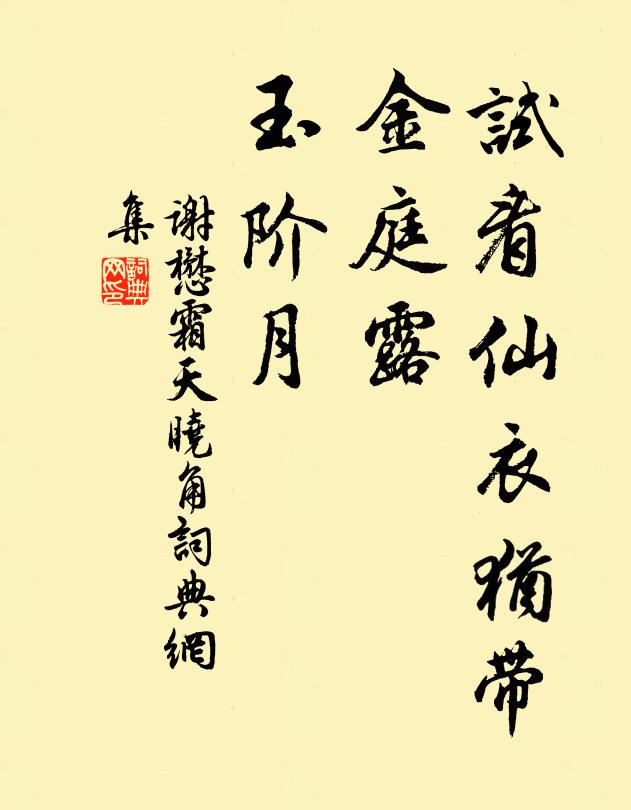 試看仙衣猶带
金庭露
玉阶月
谢懋霜天曉角詞典網
集
詞典
网印